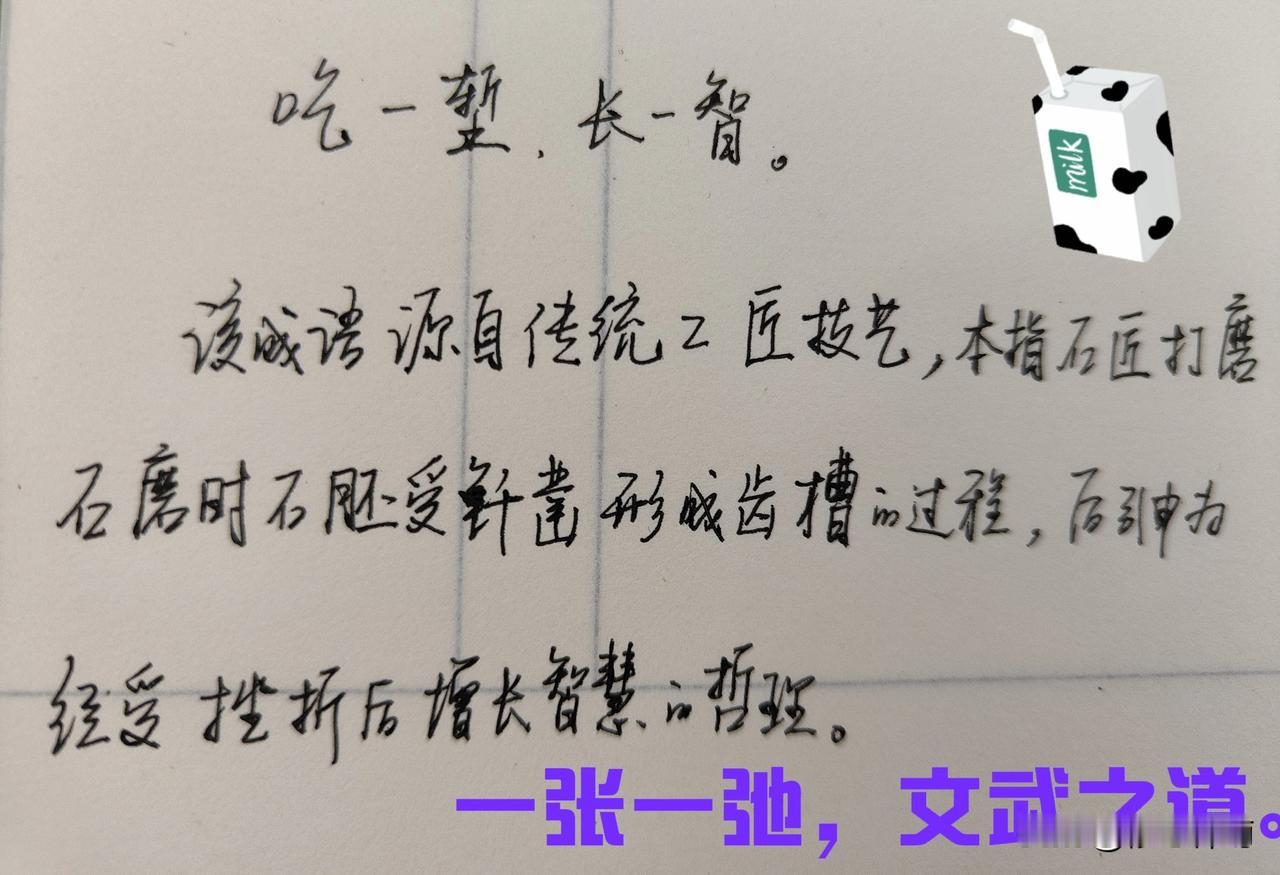 吃一堑、长一智。
milk
该成语源自传统工匠技艺,本指石匠打磨
石磨时石胚受钎凿形成齿槽的过程,后引申为
经受挫折后增长智慧的哲理。
一张一弛，文武之道。